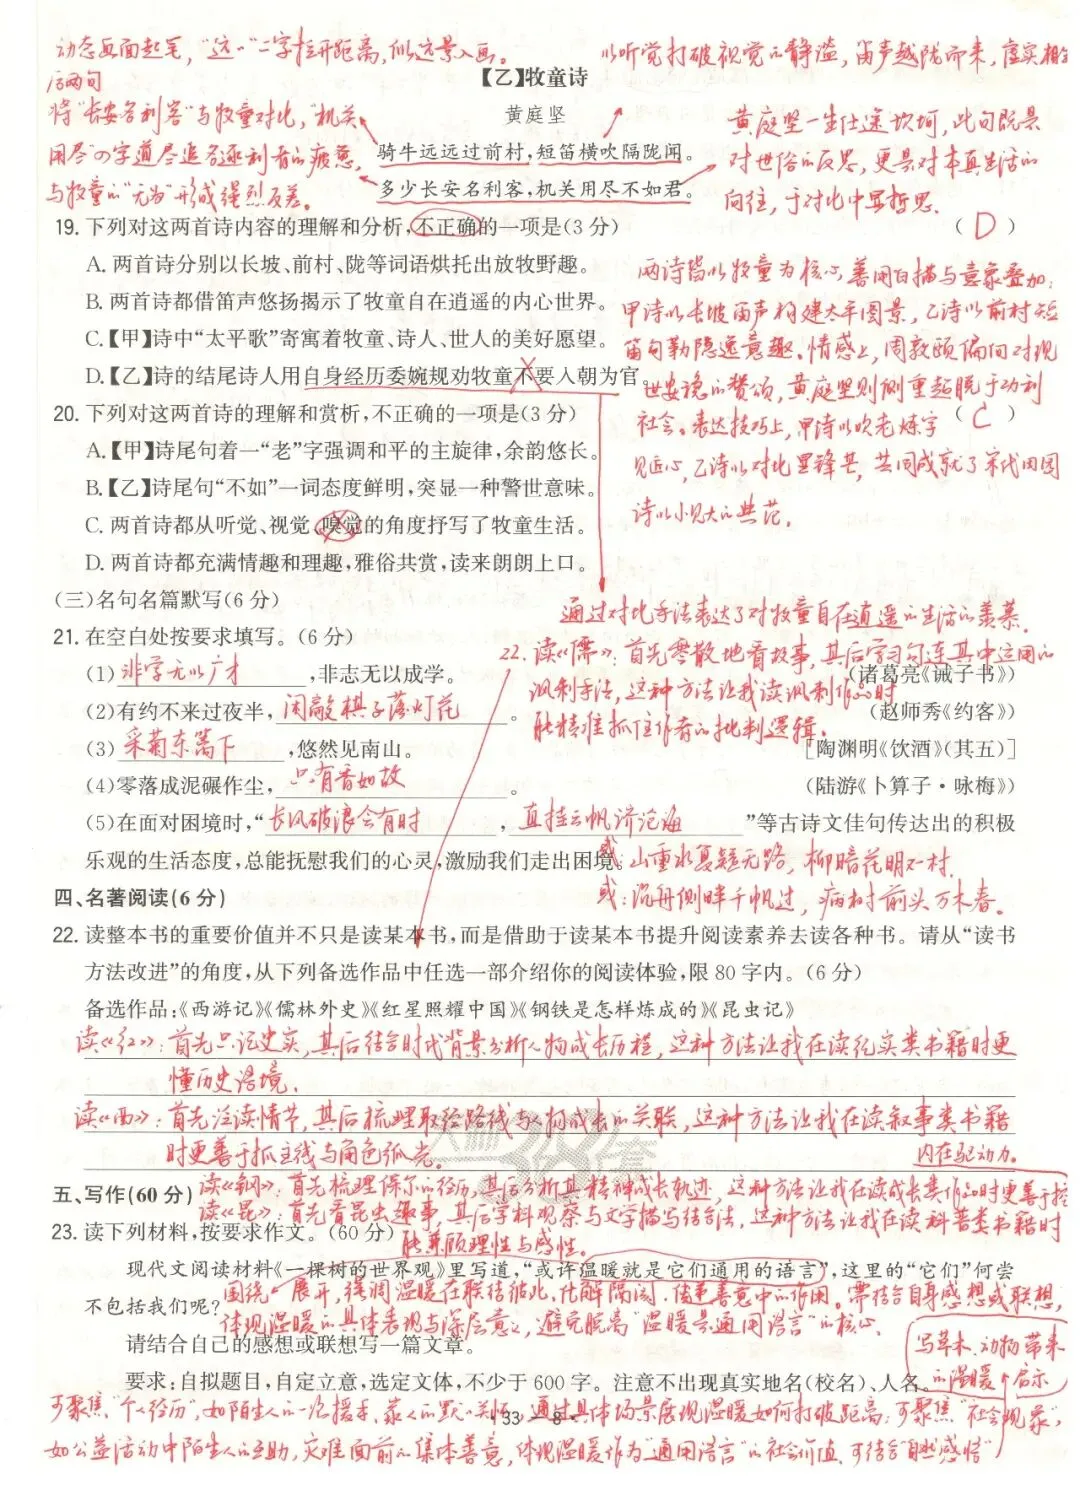 动态画面起笔，“远”二字拉开距离，似远景入画。
以听觉打破视觉的静谧，笛声越陇而来，虚实相
后两句
【乙】牧童诗
黄庭坚
将“长安名利客”与牧童对比，“机关
用尽”四字道尽追名逐利者的疲惫，
与牧童的“无为”形成强烈反差。
骑牛远远过前村，短笛横吹隔陇闻。
多少长安名利客，机关用尽不如君。
黄庭坚一生仕途坎坷，此句既是
对世俗的反思，更是对本真生活的
向往，于对比中显哲思。
19. 下列对这两首诗内容的理解和分析，不正确的一项是(3 分) ( D )
A. 两首诗分别以长坡、前村、陇等词语烘托出放牧野趣。
B. 两首诗都借笛声悠扬揭示了牧童自在逍遥的内心世界。
C.【甲】诗中“太平歌”寄寓着牧童、诗人、世人的美好愿望。
D.【乙】诗的结尾诗人用自身经历委婉规劝牧童不要入朝为官。
两诗皆以牧童为核心，善用白描与意象叠加：
甲诗以长坡笛声构建太平图景，乙诗以前村短
笛勾勒隐逸意趣。情感上，周敦颐偏向对现
世安稳的赞颂，黄庭坚则侧重超脱于功利
社会。表达技巧上，甲诗以吹老炼字
见匠心，乙诗以对比显锋芒，共同成就了宋代田园
诗以小见大的典范。
20. 下列对这两首诗的理解和赏析，不正确的一项是(3 分) ( C )
A.【甲】诗尾句着一“老”字强调和平的主旋律，余韵悠长。
B.【乙】诗尾句“不如”一词态度鲜明，突显一种警世意味。
C. 两首诗都从听觉、视觉、嗅觉的角度抒写了牧童生活。
D. 两首诗都充满情趣和理趣，雅俗共赏，读来朗朗上口。
通过对比手法表达了对牧童自在逍遥的生活的羡慕。
(三)名句名篇默写(6 分)
21. 在空白处按要求填写。(6 分)
22. 读《儒》：首先零散地看故事，其后学习勾连其中运用的
讽刺手法，这种方法让我读讽刺作品时
能精准抓住作者的批判逻辑。
(1) 非学无以广才，非志无以成学。 (诸葛亮《诫子书》)
(2)有约不来过夜半，闲敲棋子落灯花。 (赵师秀《约客》)
(3) 采菊东篱下，悠然见南山。 [陶渊明《饮酒》(其五)]
(4)零落成泥碾作尘，只有香如故。 (陆游《卜算子·咏梅》)
(5)在面对困境时，“长风破浪会有时，直挂云帆济沧海”等古诗文佳句传达出的积极
乐观的生活态度，总能抚慰我们的心灵，激励我们走出困境。
或：山重水复疑无路，柳暗花明又一村。
或：沉舟侧畔千帆过，病树前头万木春。
四、名著阅读(6 分)
22. 读整本书的重要价值并不只是读某本书，而是借助于读某本书提升阅读素养去读各种书。请从“读书
方法改进”的角度，从下列备选作品中任选一部介绍你的阅读体验，限 80 字内。(6 分)
备选作品：《西游记》《儒林外史》《红星照耀中国》《钢铁是怎样炼成的》《昆虫记》
读《红》：首先只记史实，其后结合时代背景分析人物成长历程，这种方法让我在读纪实类书籍时更
懂历史语境。
读《西》：首先泛读情节，其后梳理取经路线与人物成长的关联，这种方法让我在读叙事类书籍
时更善于抓主线与角色弧光。
内在驱动力。
五、写作(60 分)
读《钢》：首先梳理保尔的经历，其后分析其精神成长轨迹，这种方法让我在读成长类作品时更善于挖
读《昆》：首先看昆虫趣事，其后学科观察与文学描写结合法，这种方法让我在读科普类书籍时
能兼顾理性与感性。
23. 读下列材料，按要求作文。(60 分)
现代文阅读材料《一棵树的世界观》里写道，“或许温暖就是它们通用的语言”，这里的“它们”何尝
不包括我们呢？
围绕展开，强调温暖在联结彼此、化解隔阂、传递善意中的作用。需结合自身感想或联想，
体现温暖的具体表现与深层意义，避免脱离“温暖是通用语言”的核心。
请结合自己的感想或联想写一篇文章。
写草木、动物带来
的温暖 启示
要求：自拟题目，自定立意，选定文体，不少于 600 字。注意不出现真实地名(校名)、人名。
可聚焦“个人经历”，如陌生人的一次援手、家人的默默关怀，通过具体场景展现温暖如何打破距离；可聚焦“社会现象”，
133 - 8
如公益活动中陌生人的互助，灾难面前的集体善意，体现温暖作为“通用语言”的社会价值，可结合“自然感悟”